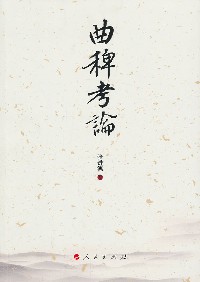 曲稗考論
人民出版社